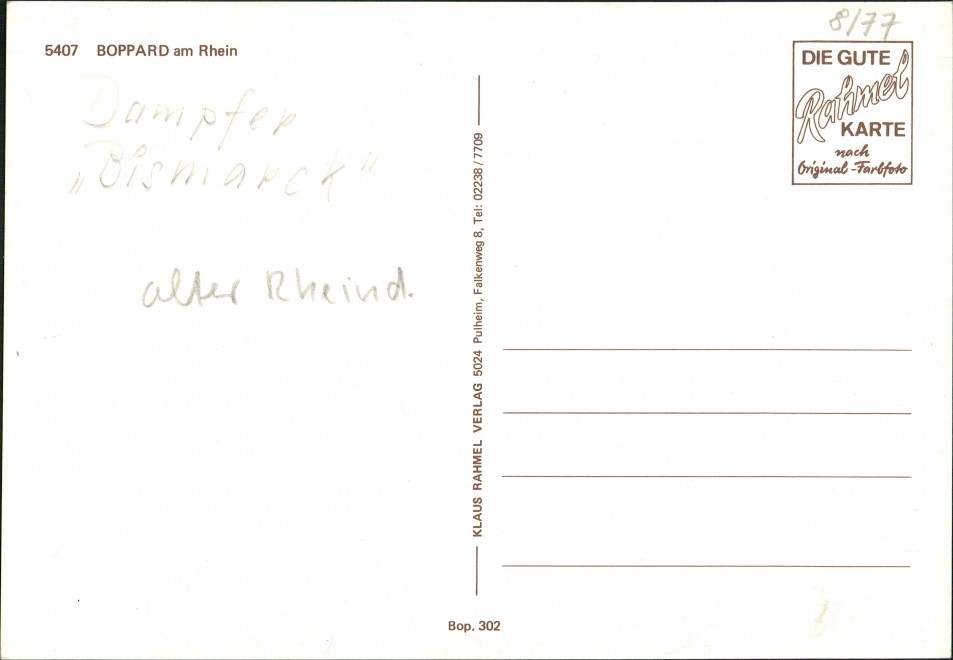 8/77
5407 BOPPARD am Rhein
DIE GUTE
Rahmel
KARTE
nach
Original-Farbfoto
Dampfer
„Bismarck"
alter Rheind.
KLAUS RAHMEL VERLAG 5024 Pulheim, Falkenweg 8, Tel: 02238/7709
Bop. 302